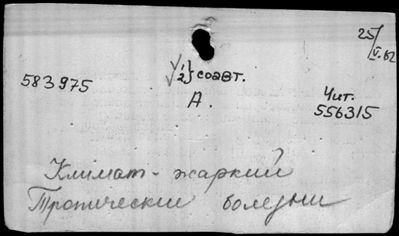 25/V.62
√ 1/2} соавт.
583975
А.
Чит.
556315
Климат - жаркий
Тропические болезни